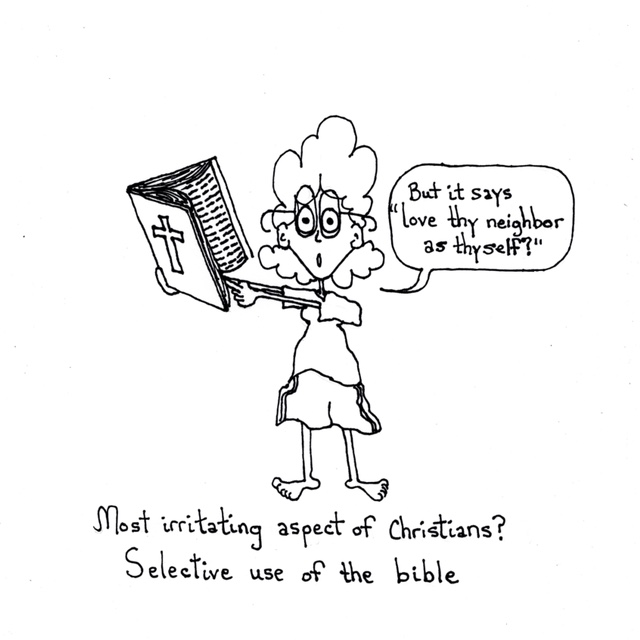 But it says
"love thy neighbor
as thyself?"
Most irritating aspect of Christians?
Selective use of the bible